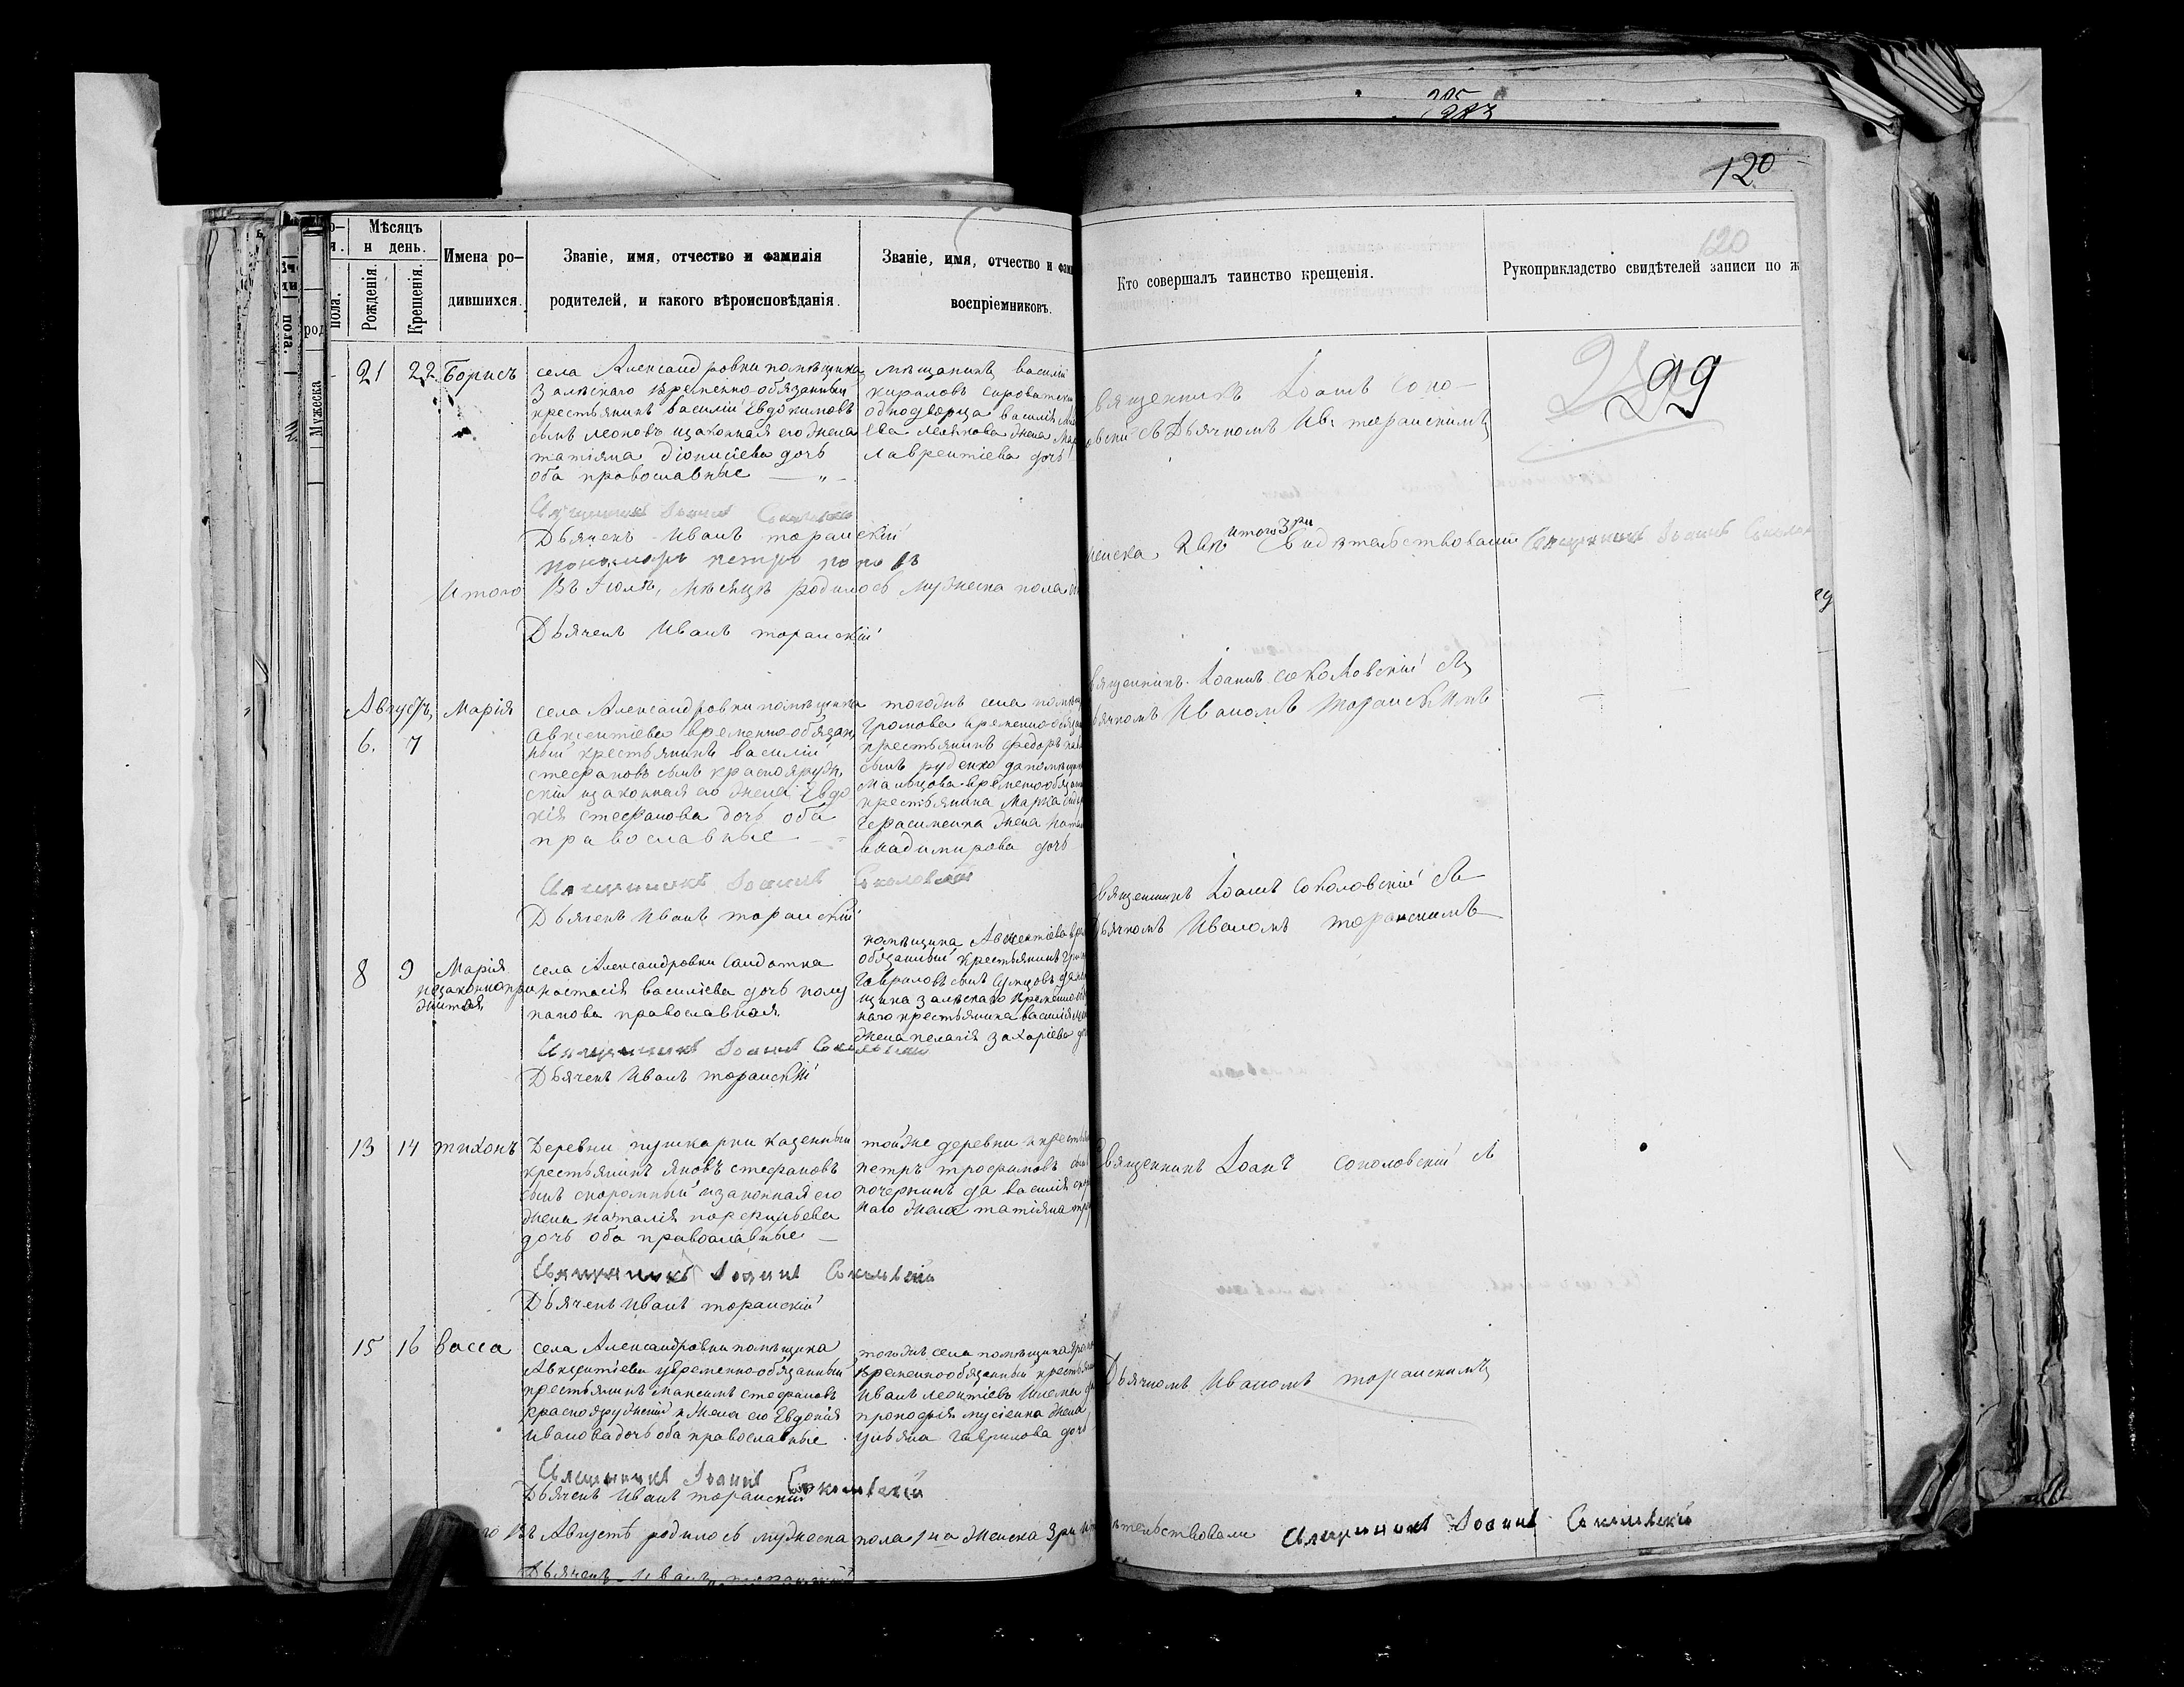 205
120
120
Мѣсяцъ
и день.
Рожденія.
Крещенія.
пола.
Мужеска
Имена ро-
дившихся.
Званіе, имя, отчество и фамилія
родителей, и какого вѣроисповѣданія.
Званіе, имя, отчество и
воспріемниковъ.
Кто совершалъ таинство крещенія.
Рукоприкладство свидѣтелей записи по ж
21 22 Борисъ
села Александровки помѣщика
Залѣскаго временно-обязанный
крестьянинъ василій Евдокимовъ
сынъ леоновъ изаконная его жена
татіяна діонисіева дочь
оба православные
мѣщанинъ василій
однодворца василія
жена
лаврентіева дочь
Священникъ Іоаннъ Соко-
овскій съ Дьячкомъ Ив. торанскимъ
299
Священникъ Іоаннъ Соколовскій
Дьячекъ Иванъ торанскій
пономарь петръ поповъ
Итого Въ Іюлѣ, мѣсяцѣ родилось мужеска пола
женска 2 итого 3ри Свидѣтельствовали Священникъ Іоаннъ
Дьячекъ Иванъ торанскій
Августъ,
6. 7
Марія
села Александровки помѣщика
Авксентіева временно-обязан
ный крестьянинъ василій
стефановъ сынъ краснояруж
скій изаконная его жена Евдо
кія стефанова дочь оба
православные
тогожъ села
Громова временно-обязан
крестьянинъ федоръ
сынъ руденко да помѣщ
Мальцова временнообяза
крестьянина Марка
Герасименка жена
владимирова дочь
вященникъ Іоаннъ соколовскій съ
ьячкомъ Иваномъ торанскимъ
Священникъ Іоаннъ Соколовскій
Дьячекъ Иванъ торанскій
8 9 Марія
незаконнопри
житая
села Александровки Солдатка
настасія василіева дочь полу
панова православная
помѣщика Авксентіева вре
обязанный крестьянинъ
Гавриловъ сынъ
щика залѣскаго временно
наго крестьянина василія
жена пелагія захаріева д
вященникъ Іоаннъ соколовскій съ
Дьячкомъ Иваномъ торанскимъ
Священникъ Іоаннъ Соколовскій
Дьячекъ Иванъ торанскій
13 14 тихонъ
Деревни пушкарки казенный
крестьянинъ яковъ стефановъ
сынъ скоромный изаконная его
жена наталія порфирьева
дочь оба православные
тойже деревни крестья
петръ трофимовъ сынъ
почернинъ да василія
наго жена татіяна
Священникъ Іоанъ соколовскій съ
Священникъ Іоаннъ Соколовскій
Дьячекъ Иванъ торанскій
15 16 васса
села Александровки помѣщика
Авксентіева временно-обязанный
крестьянинъ Максимъ стефановъ
краснояружскій и жена его Евдокія
Иванова дочь оба православные
тогожъ села помѣщика
временнообязанный крестьян
Иванъ леонтіевъ
прокофія мусіенка жена
ульяна Гаврилова дочь
Дьячкомъ Иваномъ торанскимъ
Священникъ Іоаннъ Соколовскій
Дьячекъ Иванъ торанскій
Въ Августѣ родилось мужеска пола 1 на женска 3ри
тельствовали Священникъ Іоаннъ Соколовскій
Дьячекъ Иванъ торанскій